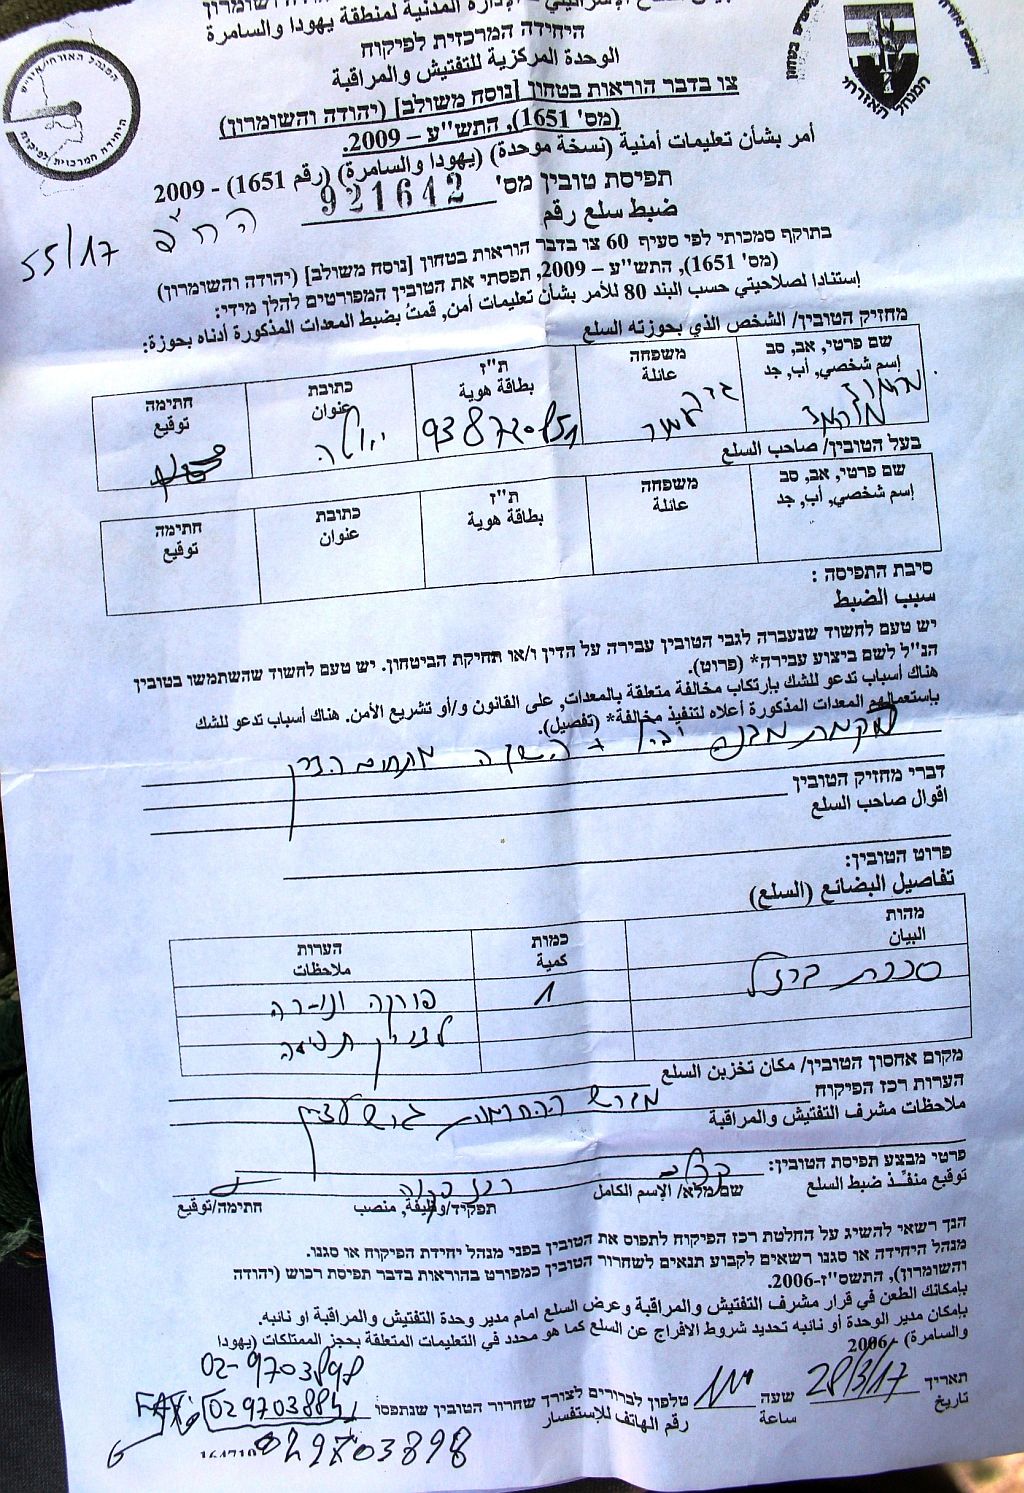 היחידה המרכזית לפיקוח
الوحدة المركزية للتفتيش والمراقبة
צו בדבר הוראות בטחון [נוסח משולב] (יהודה והשומרון)
(מס' 1651), התש"ע – 2009.
أمر بشأن تعليمات أمنية (نسخة موحدة) (يهودا والسامرة) (رقم 1651) - 2009
תפיסת טובין מס' 921642
ضبط سلع رقم
55/17
בתוקף סמכותי לפי סעיף 60 צו בדבר הוראות בטחון [נוסח משולב] (יהודה והשומרון)
(מס' 1651), התש"ע – 2009, תפסתי את הטובין המפורטים להלן מידי:
إستنادا لصلاحيتي حسب البند 80 للأمر بشأن تعليمات أمن, قمتُ بضبط المعدات المذكورة أدناه بحوزة:
מחזיק הטובין/ الشخص الذي بحوزته السلع
שם פרטי, אב, סב משפחה ת"ז כתובת חתימה
إسم شخصي, أب, جد عائلة بطاقة هوية عنوان توقيع
בעל הטובין/ صاحب السلع
שם פרטי, אב, סב משפחה ת"ז כתובת חתימה
إسم شخصي, أب, جد عائلة بطاقة هوية عنوان توقيع
סיבת התפיסה :
سبب الضبط
יש טעם לחשוד שנעברה לגבי הטובין עבירה על הדין ו/או תחיקת הביטחון. יש טעם לחשוד שהשתמשו בטובין
הנ"ל לשם ביצוע עבירה* (פרוט).
هناك أسباب تدعو للشك بإرتكاب مخالفة متعلقة بالمعدات, على القانون و/أو تشريع الأمن. هناك أسباب تدعو للشك
بإستعمالهم المعدات المذكورة أعلاه لتنفيذ مخالفة* (تفصيل).
דברי מחזיק הטובין
اقوال صاحب السلع
פרוט הטובין:
تفاصيل البضائع (السلع)
מהות כמות הערות
البيان كمية ملاحظات
סככת ברזל 1 פורקה
מקום אחסון הטובין/ مكان تخزين السلع
הערות רכז הפיקוח
ملاحظات مشرف التفتيش والمراقبة
מגרש החרמות גוש עציון
פרטי מבצע תפיסת הטובין:
توقيع منفّذ ضبط السلع
שם מלא/ الإسم الكامل תפקיד/وظيفة, منصب חתימה/توقيع
הנך רשאי להשיג על החלטת רכז הפיקוח לתפוס את הטובין בפני מנהל יחידת הפיקוח או סגנו.
מנהל היחידה או סגנו רשאים לקבוע תנאים לשחרור הטובין כמפורט בהוראות בדבר תפיסת רכוש (יהודה
והשומרון), התשס"ז-2006.
بإمكانك الطعن في قرار مشرف التفتيش والمراقبة وعرض السلع امام مدير وحدة التفتيش والمراقبة او نائبه.
بإمكان مدير الوحدة أو نائبه تحديد شروط الافراج عن السلع كما هو محدد في التعليمات المتعلقة بحجز الممتلكات (يهودا
والسامرة) - 2006
02-9703898
תאריך 28/3/17 שעה טלפון לברורים לצורך שחרור הטובין שנתפסו
تاريخ ساعة رقم الهاتف للإستفسار
FAX:
029703898